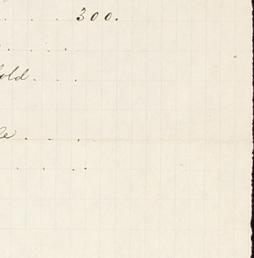 . . . . . 300.
. . . .
old . . .
le . . .
. . . .